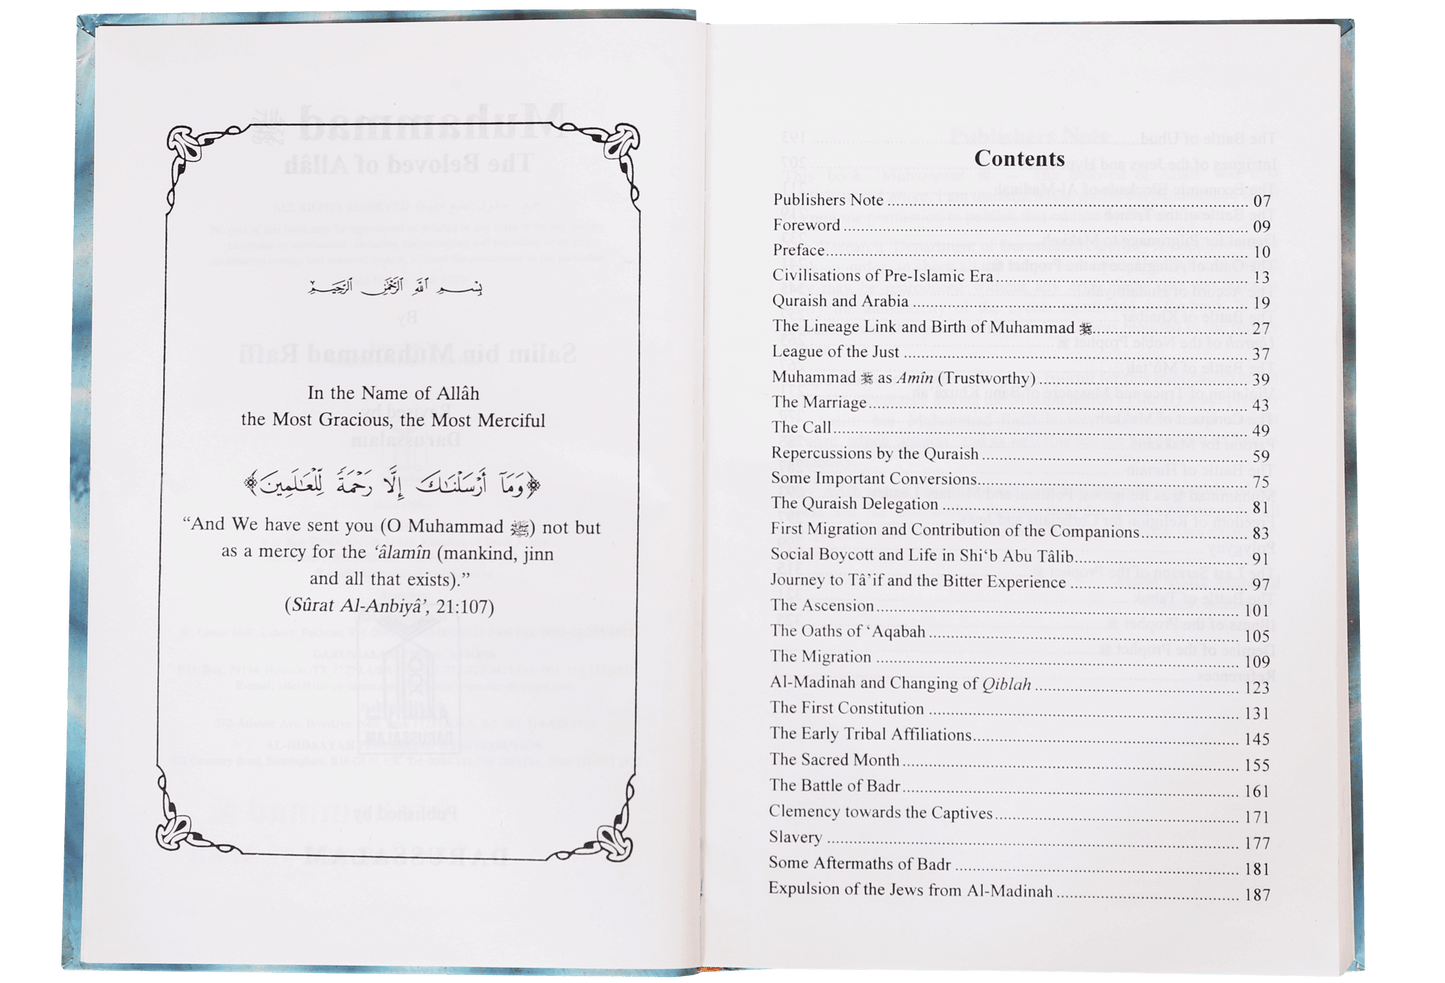 بِسْمِ اللَّهِ الرَّحْمَٰنِ الرَّحِيمِ
In the Name of Allâh
the Most Gracious, the Most Merciful
﴿وَمَآ أَرْسَلْنَٰكَ إِلَّا رَحْمَةً لِّلْعَٰلَمِينَ﴾
“And We have sent you (O Muhammad ﷺ) not but
as a mercy for the ‘âlamîn (mankind, jinn
and all that exists).”
(Sûrat Al-Anbiyâ’, 21:107)
Contents
Publishers Note ........ 07
Foreword ........ 09
Preface ........ 10
Civilisations of Pre-Islamic Era ........ 13
Quraish and Arabia ........ 19
The Lineage Link and Birth of Muhammad ﷺ ........ 27
League of the Just ........ 37
Muhammad ﷺ as Amîn (Trustworthy) ........ 39
The Marriage ........ 43
The Call ........ 49
Repercussions by the Quraish ........ 59
Some Important Conversions ........ 75
The Quraish Delegation ........ 81
First Migration and Contribution of the Companions ........ 83
Social Boycott and Life in Shi‘b Abu Tâlib ........ 91
Journey to Tâ’if and the Bitter Experience ........ 97
The Ascension ........ 101
The Oaths of ‘Aqabah ........ 105
The Migration ........ 109
Al-Madinah and Changing of Qiblah ........ 123
The First Constitution ........ 131
The Early Tribal Affiliations ........ 145
The Sacred Month ........ 155
The Battle of Badr ........ 161
Clemency towards the Captives ........ 171
Slavery ........ 177
Some Aftermaths of Badr ........ 181
Expulsion of the Jews from Al-Madinah ........ 187